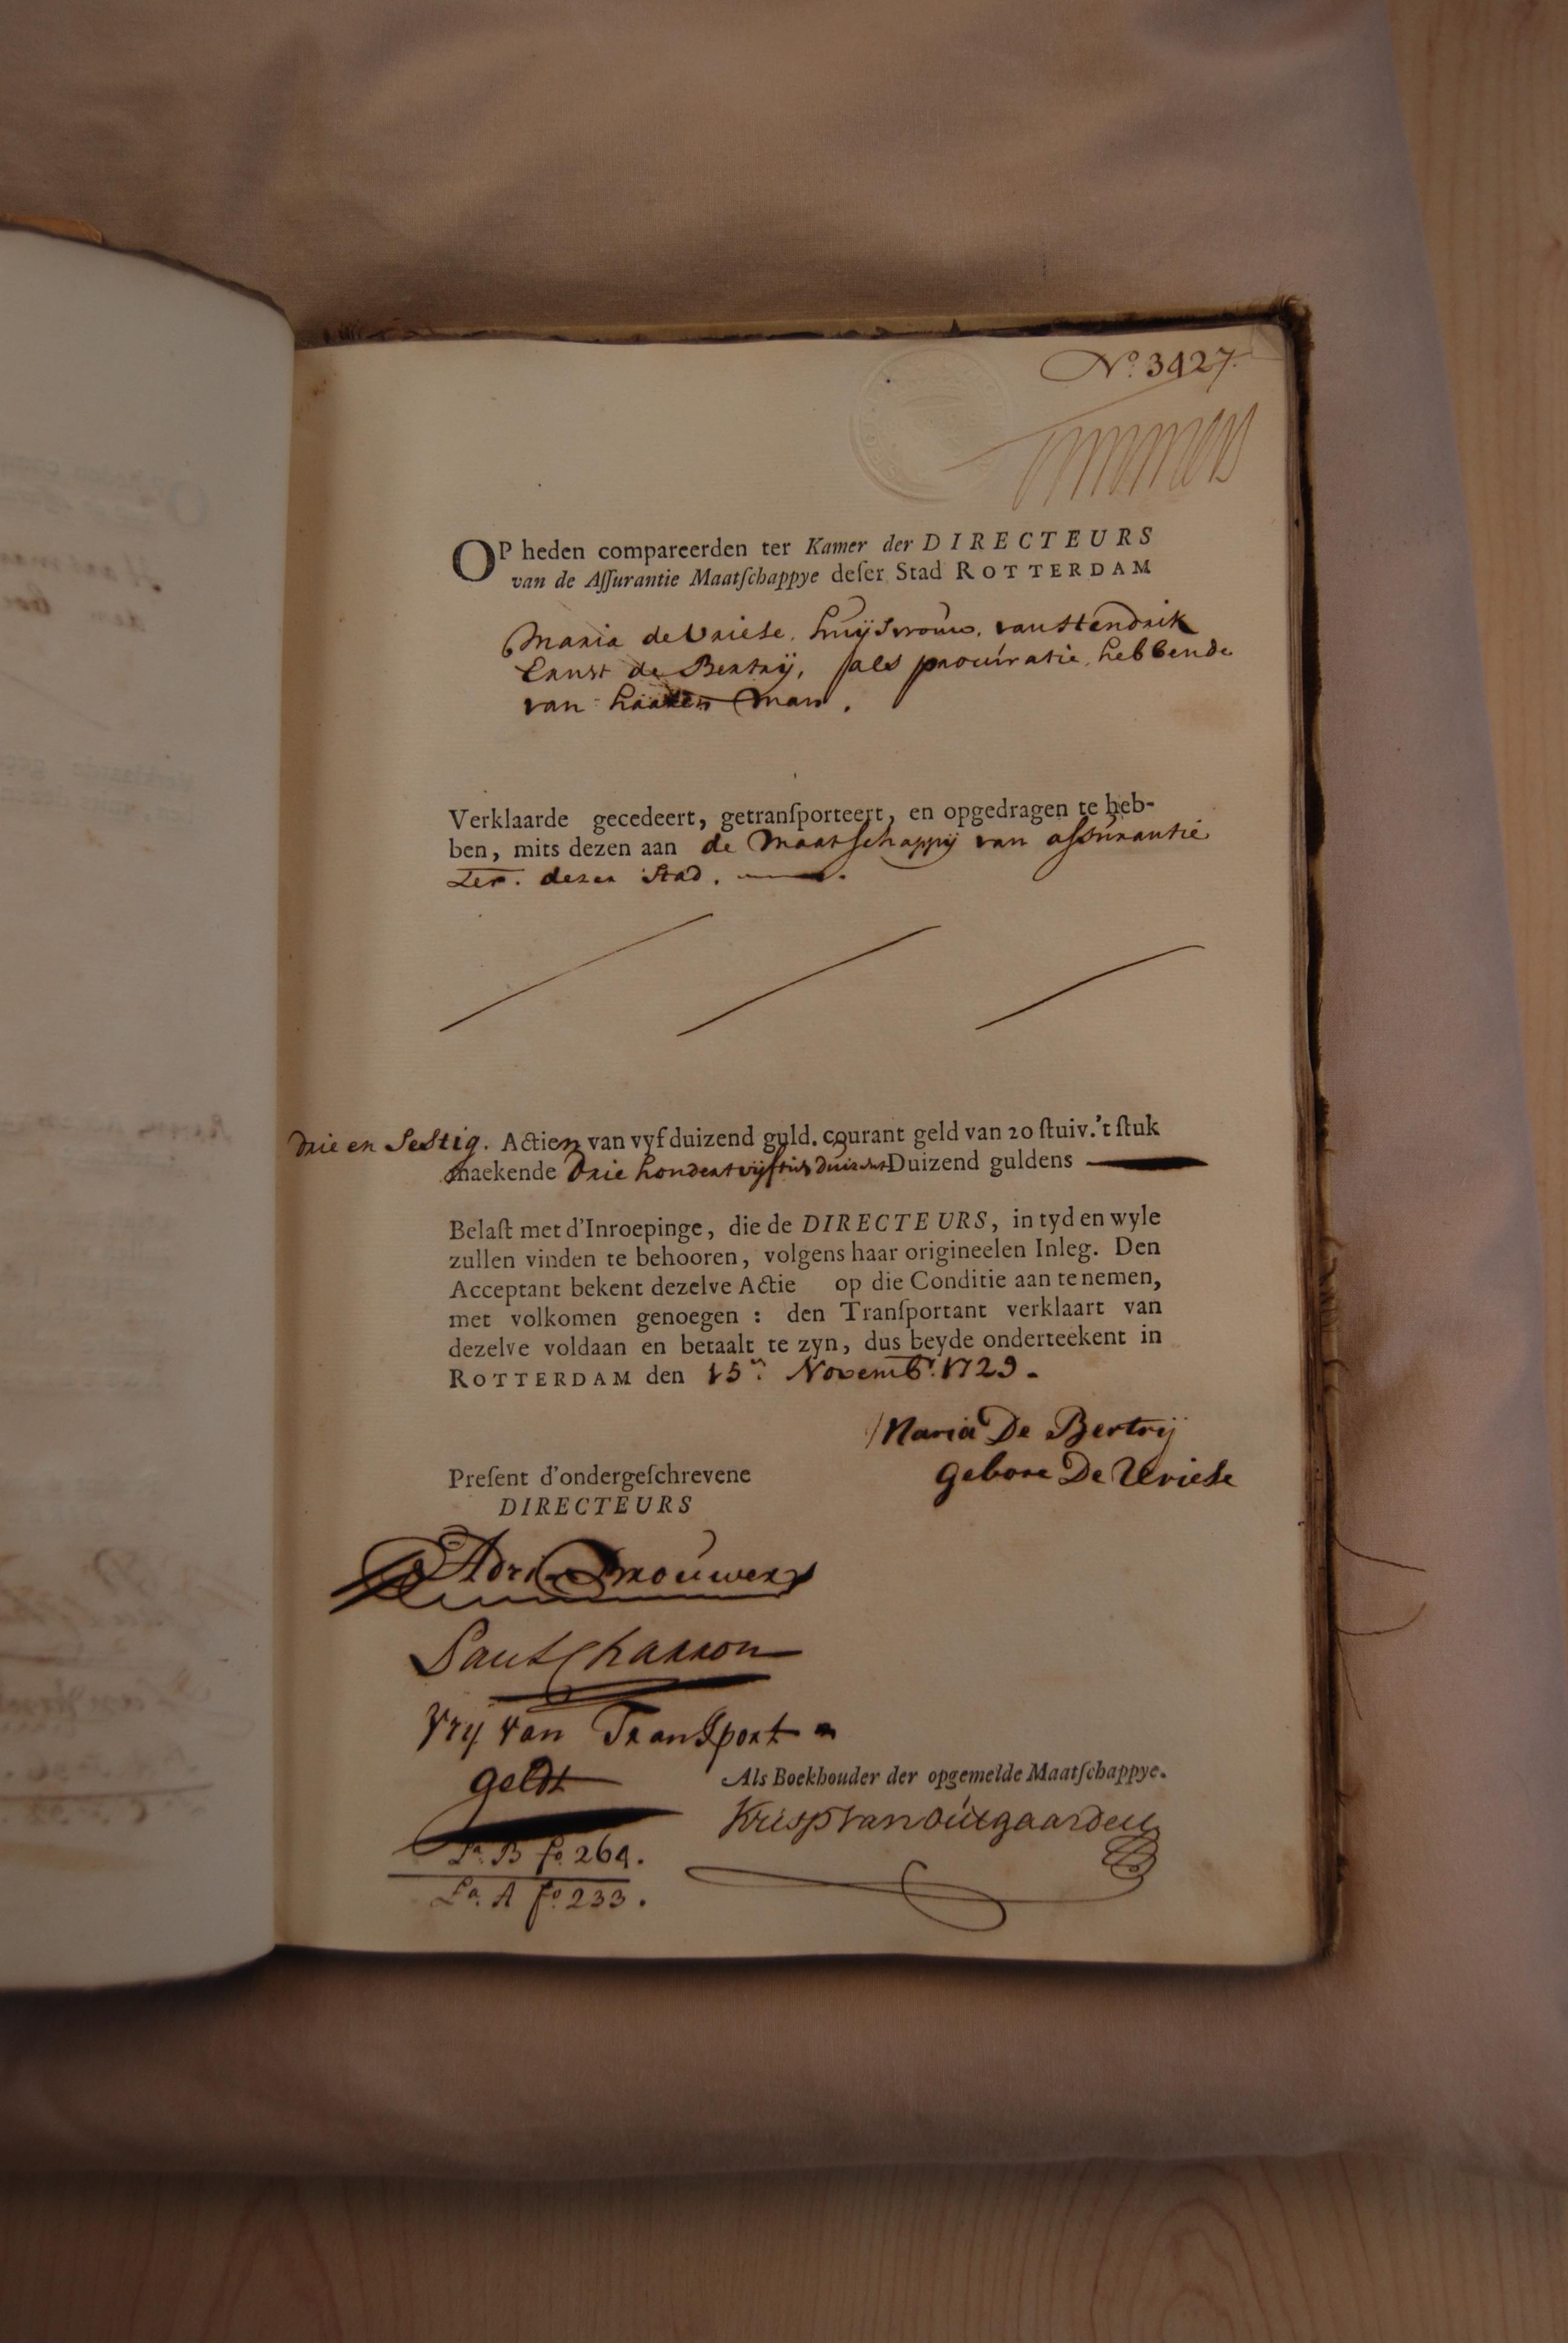 No. 3427.
OP heden compareerden ter Kamer der DIRECTEURS
van de Aſſurantie Maatſchappye deſer Stad ROTTERDAM
Maria de Vriese. huijsvrouw. van Hendrik
Ernst de Bertrij, als procuratie hebbende
van haaren man.
Verklaarde gecedeert, getranſporteert, en opgedragen te heb-
ben, mits dezen aan de Maatschappij van assurantie
dezer Stad.
Drie en Sestig. Actien van vyf duizend guld. courant geld van 20 ſtuiv. 't ſtuk
maekende Drie hondert vijftien Duizend guldens
Belaſt met d'Inroepinge, die de DIRECTEURS, in tyd en wyle
zullen vinden te behooren, volgens haar origineelen Inleg. Den
Acceptant bekent dezelve Actie op die Conditie aan te nemen,
met volkomen genoegen : den Tranſportant verklaart van
dezelve voldaan en betaalt te zyn, dus beyde onderteekent in
ROTTERDAM den 15n. Novemb. 1729.
Maria De Bertrij
gebore De Vriese
Preſent d'ondergeſchrevene
DIRECTEURS
Adri Brouwer
Paul Charron
Vrij van Transport
geldt
Als Boekhouder der opgemelde Maatſchappye.
Krisp van Outgaarden
La. B fo. 264.
La. A fo. 233.